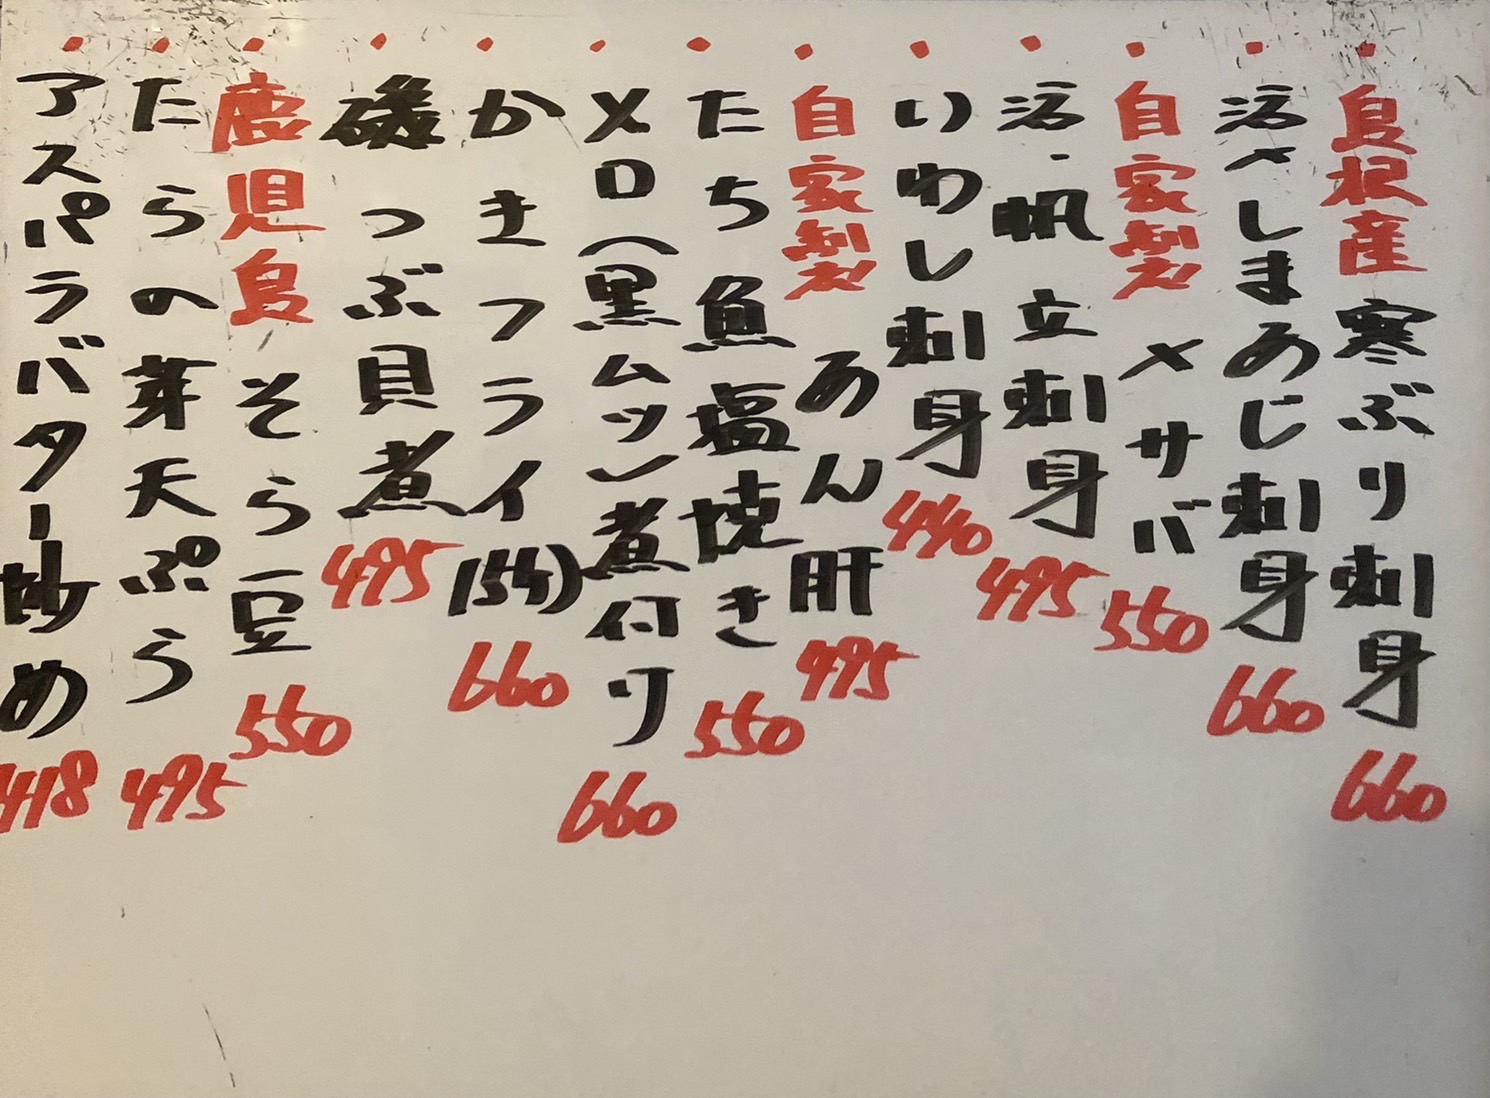 ・島根産 寒ぶり刺身 660
・活〆しまあじ刺身 660
・自家製 〆サバ 550
・活・帆立刺身 495
・いわし刺身 440
・自家製 あん肝 495
・たち魚塩焼き 550
・メロ(黒ムツ)煮付り 660
・かきフライ(5ケ) 660
・磯つぶ貝煮 495
・鹿児島 そら豆 550
・たらの芽天ぷら 495
・アスパラバター炒め 418